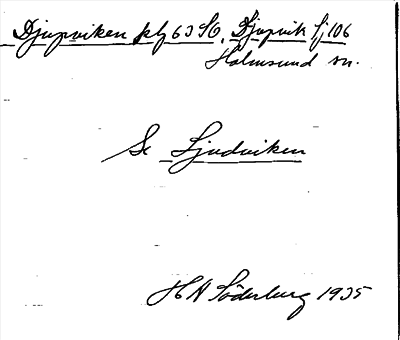 Djupviken kbl 63 SO, Djupvik fj 106
Holmsund sn.
Se Ljudviken
H N Söderberg 1935